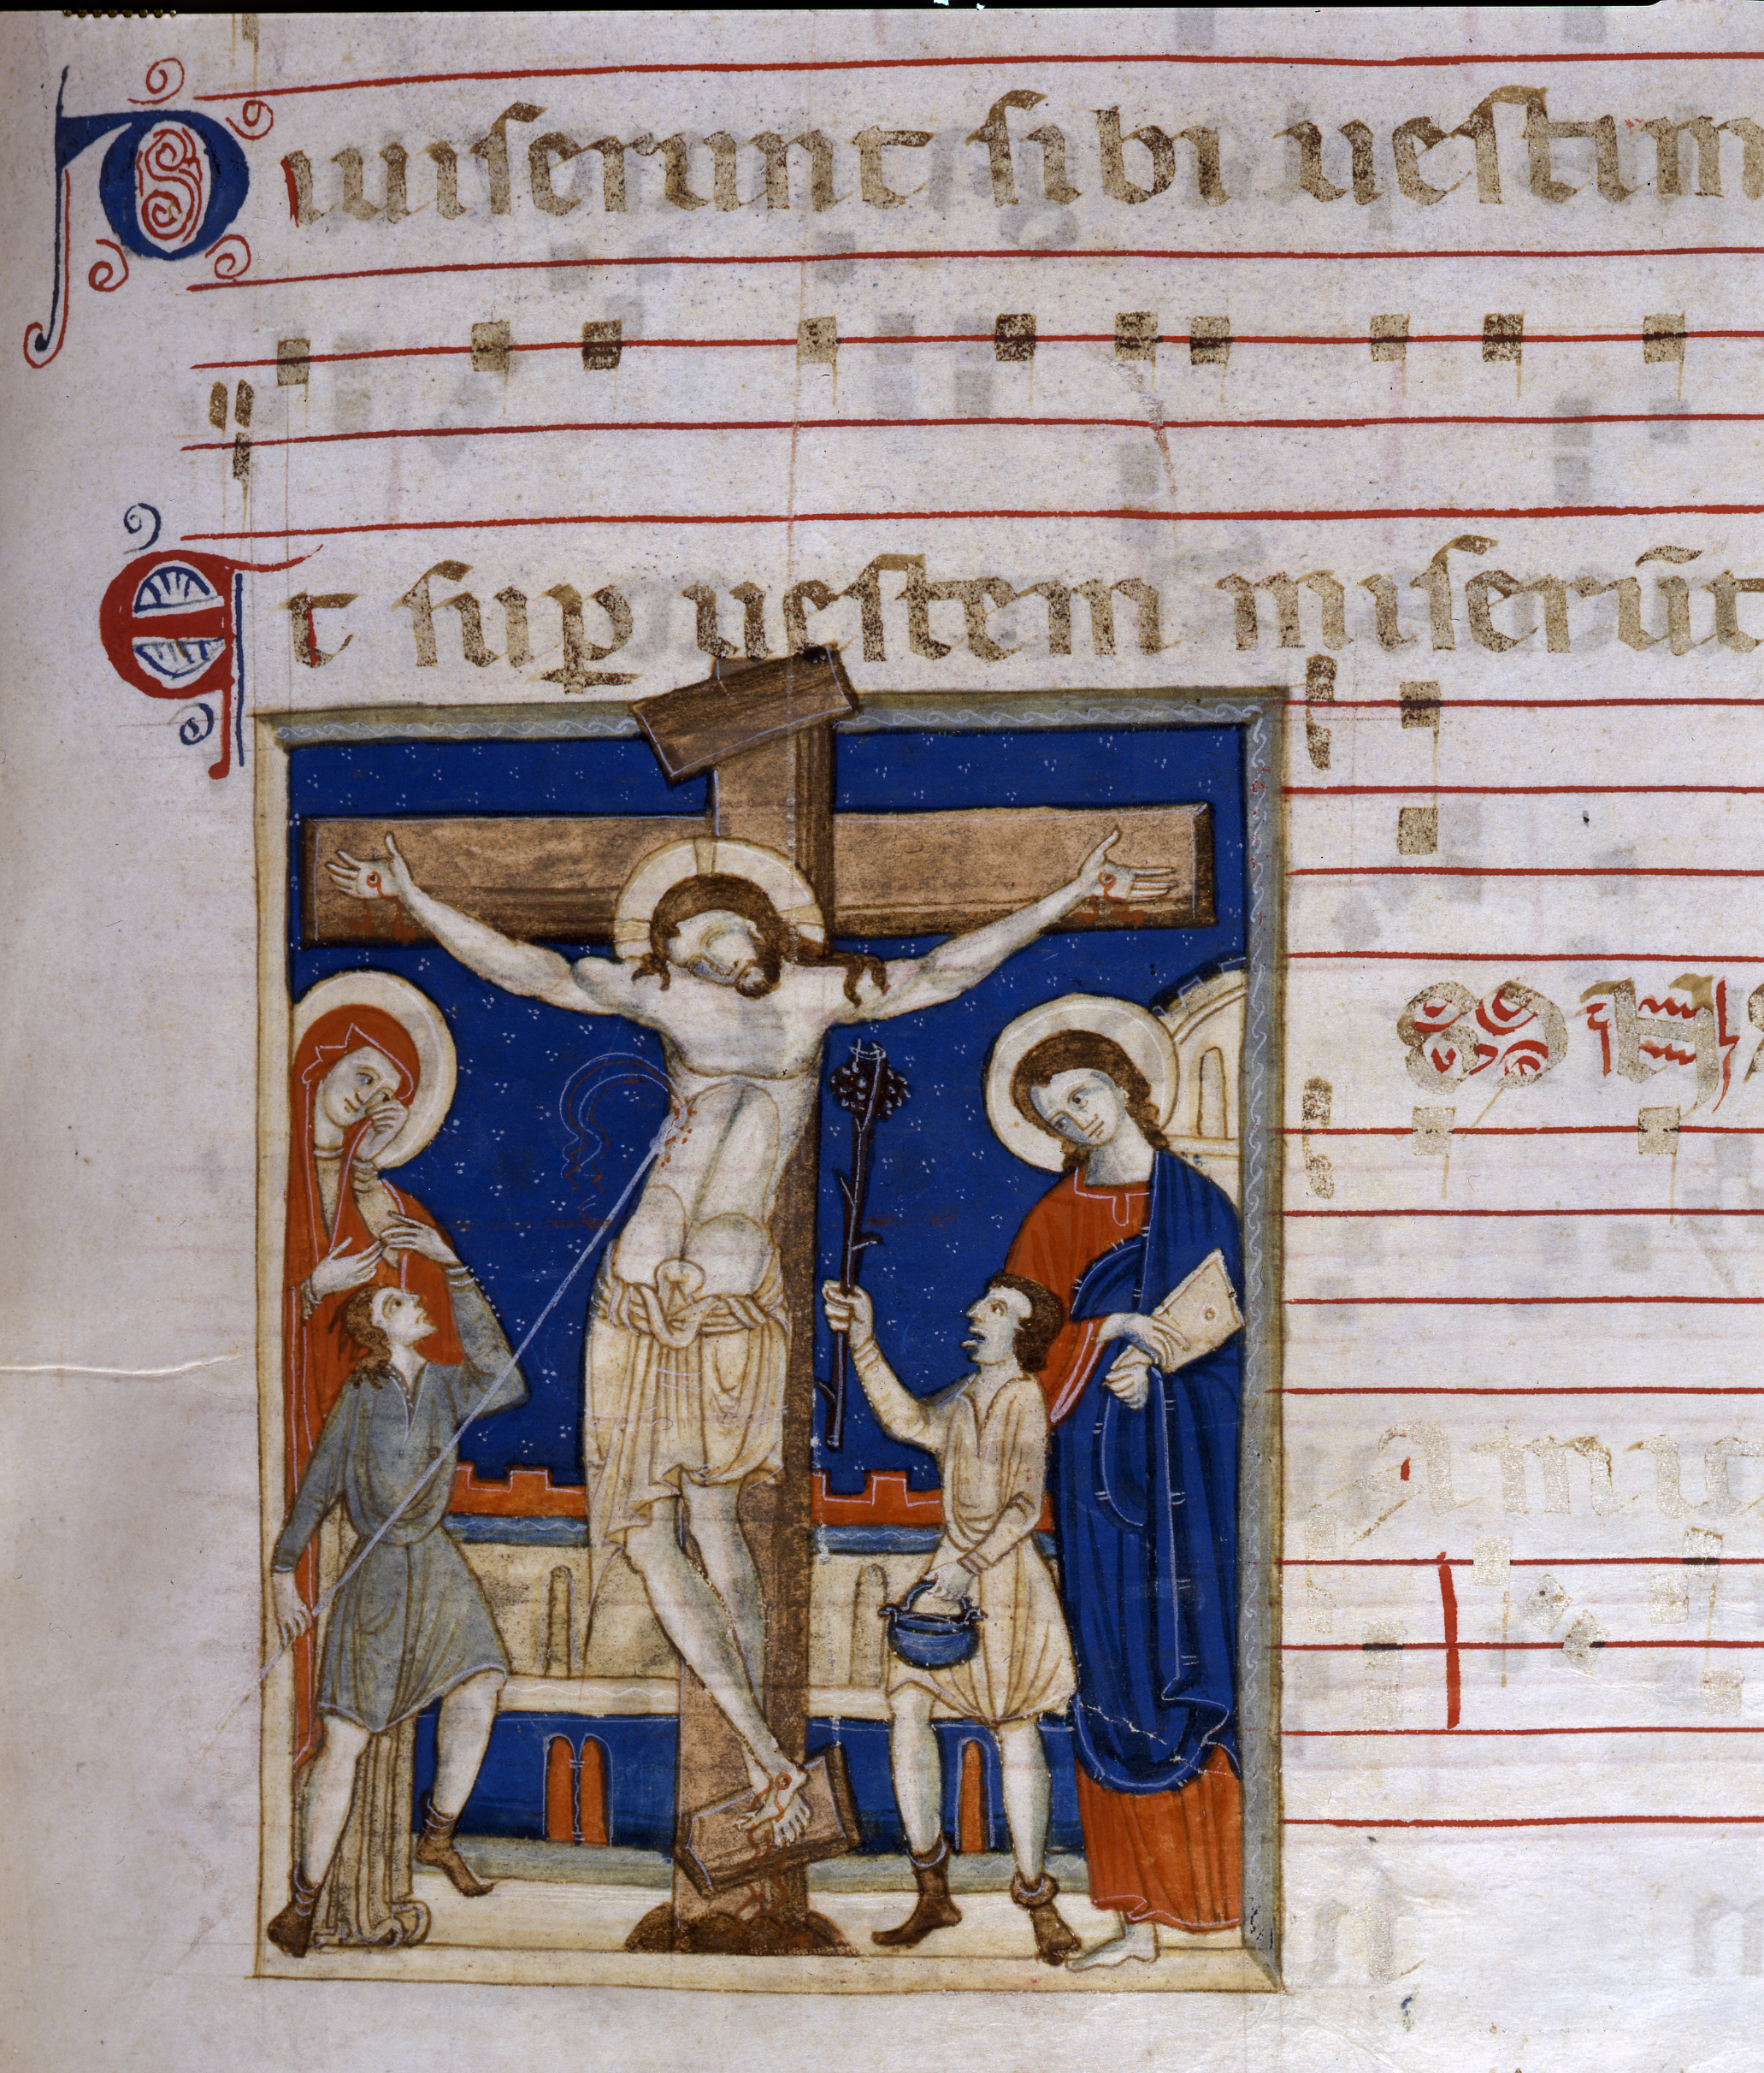 Diuiserunt sibi uestim
Et sup̱ uestem miserūt
Amic